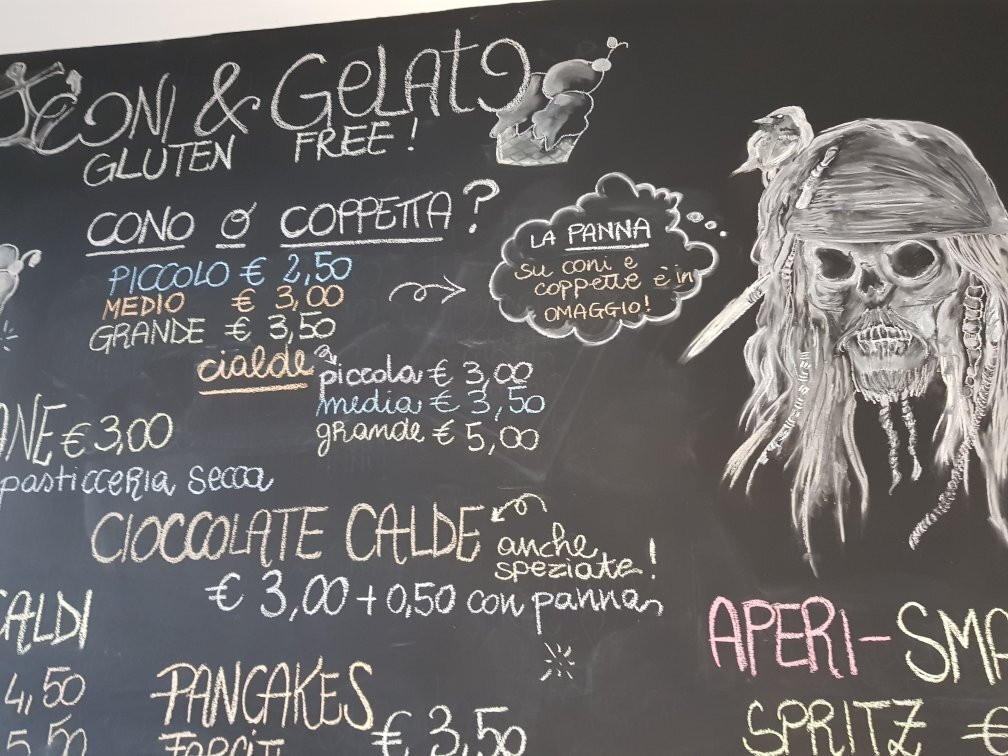 CONI & GELATO
GLUTEN FREE!
CONO O COPPETTA?
PICCOLO € 2,50
MEDIO € 3,00
GRANDE € 3,50
LA PANNA
SU CONI E
COPPETTE È IN
OMAGGIO!
cialde
piccola € 3,00
media € 3,50
grande € 5,00
ANE € 3,00
pasticceria secca
CIOCCOLATE CALDE
anche
speziate!
€ 3,00 + 0,50 con panna
CALDI
4,50
5,50
PANCAKES
FARCITI
€ 3,50
APERI-SMA
SPRITZ €